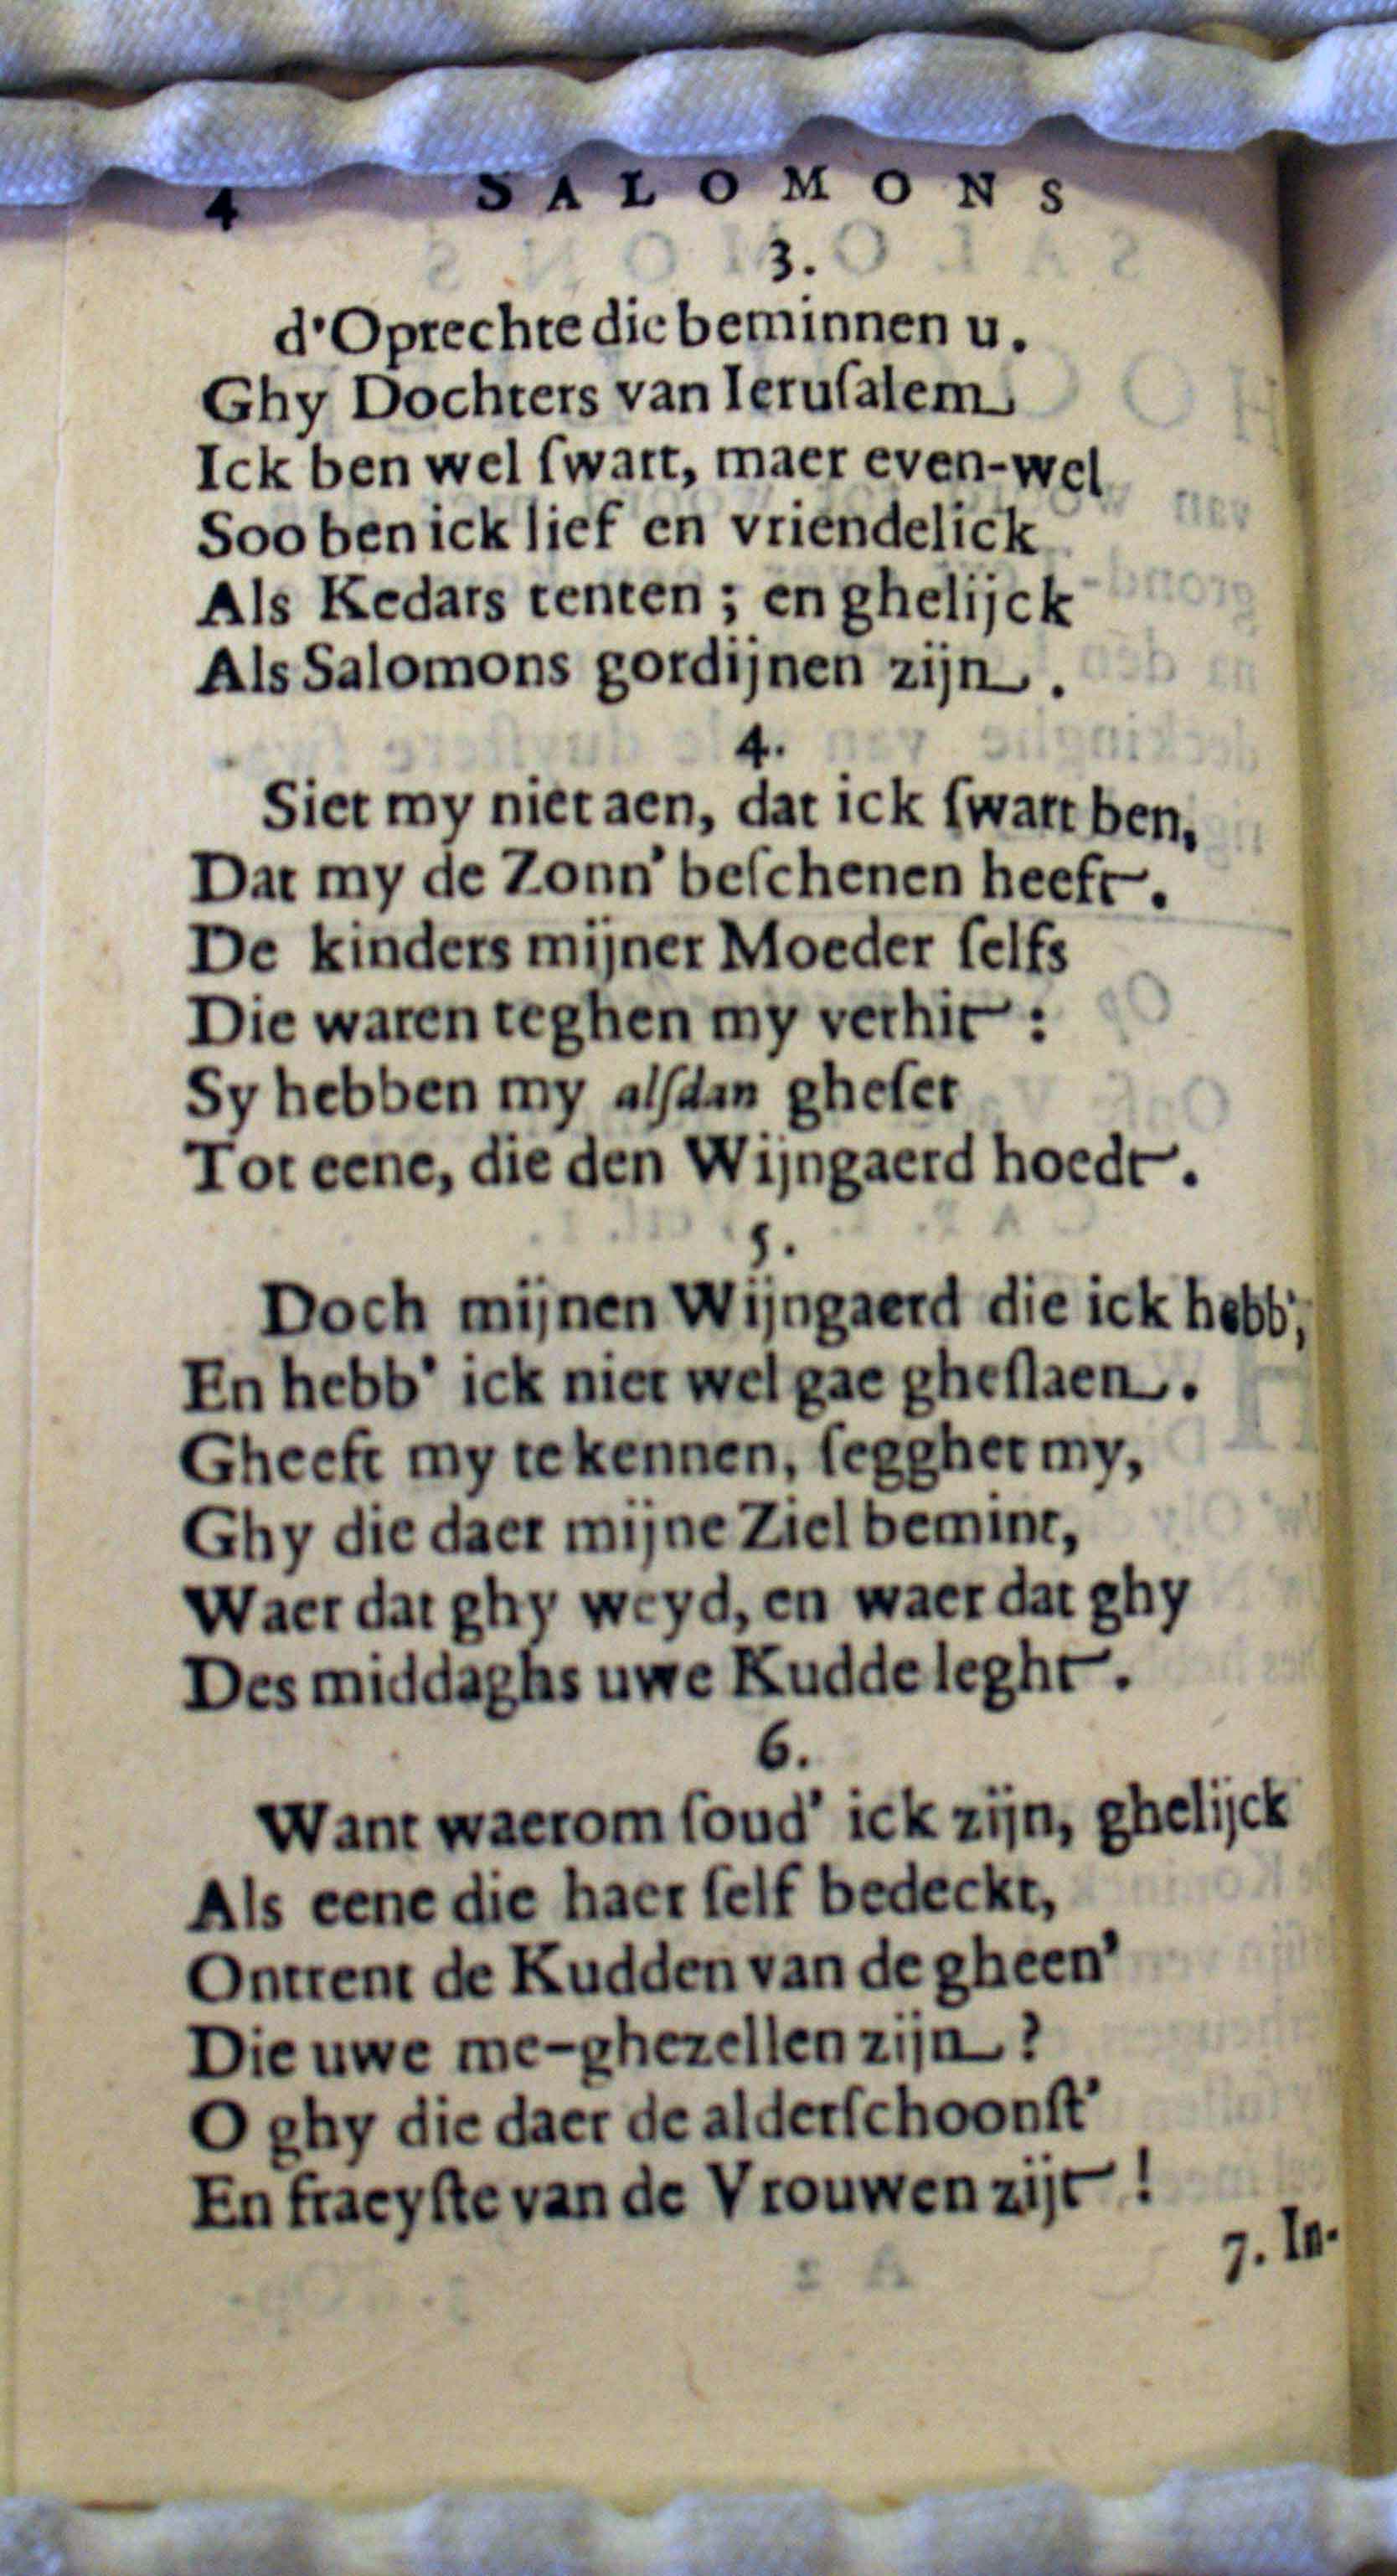 4 SALOMONS
3.
d'Oprechte die beminnen u.
Ghy Dochters van Ieruſalem
Ick ben wel ſwart, maer even-wel
Soo ben ick lief en vriendelick
Als Kedars tenten ; en ghelijck
Als Salomons gordijnen zijn.
4.
Siet my niet aen, dat ick ſwart ben,
Dat my de Zonn' beſchenen heeft.
De kinders mijner Moeder ſelfs
Die waren teghen my verhit :
Sy hebben my alſdan gheſet
Tot eene, die den Wijngaerd hoedt.
5.
Doch mijnen Wijngaerd die ick hebb',
En hebb' ick niet wel gae gheſlaen.
Gheeft my te kennen, ſegghet my,
Ghy die daer mijne Ziel bemint,
Waer dat ghy weyd, en waer dat ghy
Des middaghs uwe Kudde leght.
6.
Want waerom ſoud' ick zijn, ghelijck
Als eene die haer ſelf bedeckt,
Ontrent de Kudden van de gheen'
Die uwe me-ghezellen zijn ?
O ghy die daer de alderſchoonſt'
En fraeyſte van de Vrouwen zijt !
7. In-